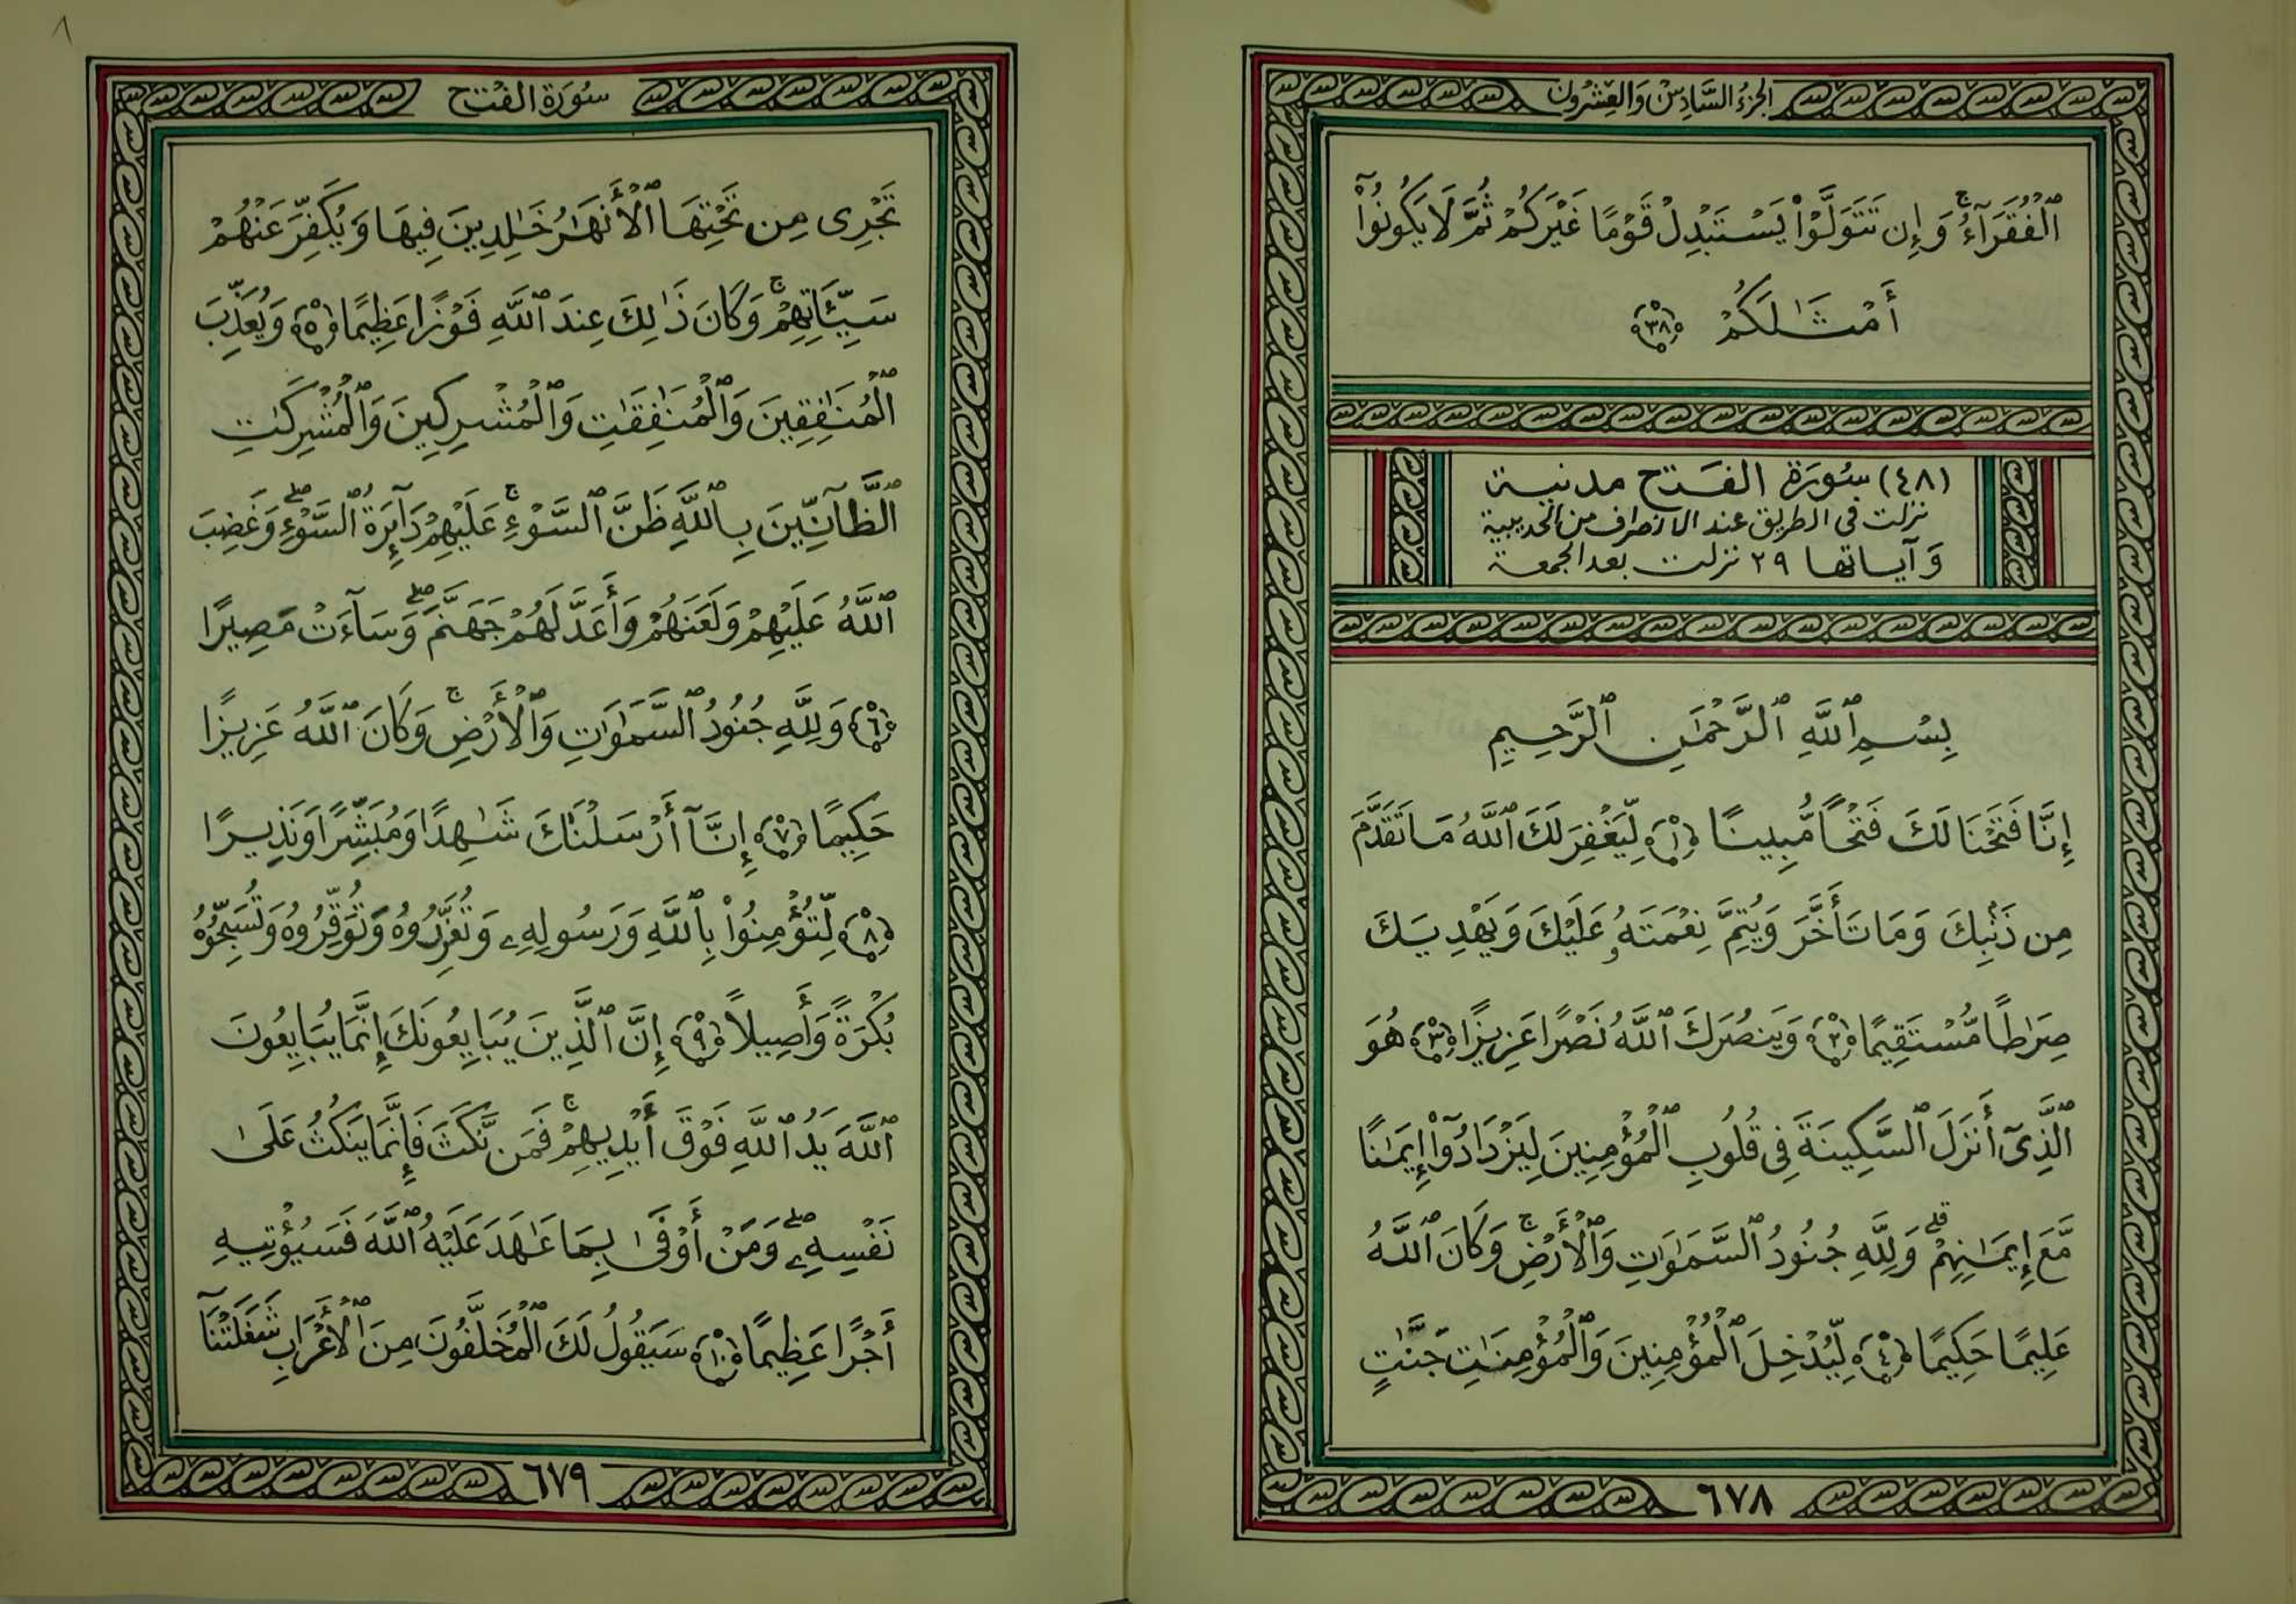 الجزء السادس والعشرون
ٱلْفُقَرَآءُ ۚ وَإِن تَتَوَلَّوْا۟ يَسْتَبْدِلْ قَوْمًا غَيْرَكُمْ ثُمَّ لَا يَكُونُوٓا۟
أَمْثَـٰلَكُمْ ﴿٣٨﴾
(٤٨) سُورَة الفَتْح مدنية
نزلت فى الطريق عند الانصراف من الحديبية
وَآياتها ٢٩ نزلت بعد الجمعة
بِسْمِ ٱللَّهِ ٱلرَّحْمَـٰنِ ٱلرَّحِيمِ
إِنَّا فَتَحْنَا لَكَ فَتْحًا مُّبِينًا ﴿١﴾ لِّيَغْفِرَ لَكَ ٱللَّهُ مَا تَقَدَّمَ
مِن ذَنۢبِكَ وَمَا تَأَخَّرَ وَيُتِمَّ نِعْمَتَهُۥ عَلَيْكَ وَيَهْدِيَكَ
صِرَٰطًا مُّسْتَقِيمًا ﴿٢﴾ وَيَنصُرَكَ ٱللَّهُ نَصْرًا عَزِيزًا ﴿٣﴾ هُوَ
ٱلَّذِىٓ أَنزَلَ ٱلسَّكِينَةَ فِى قُلُوبِ ٱلْمُؤْمِنِينَ لِيَزْدَادُوٓا۟ إِيمَـٰنًا
مَّعَ إِيمَـٰنِهِمْ ۗ وَلِلَّهِ جُنُودُ ٱلسَّمَـٰوَٰتِ وَٱلْأَرْضِ ۚ وَكَانَ ٱللَّهُ
عَلِيمًا حَكِيمًا ﴿٤﴾ لِّيُدْخِلَ ٱلْمُؤْمِنِينَ وَٱلْمُؤْمِنَـٰتِ جَنَّـٰتٍ
٦٧٨
٨
سُورَة الفَتْح
تَجْرِى مِن تَحْتِهَا ٱلْأَنْهَـٰرُ خَـٰلِدِينَ فِيهَا وَيُكَفِّرَ عَنْهُمْ
سَيِّـَٔاتِهِمْ ۚ وَكَانَ ذَٰلِكَ عِندَ ٱللَّهِ فَوْزًا عَظِيمًا ﴿٥﴾ وَيُعَذِّبَ
ٱلْمُنَـٰفِقِينَ وَٱلْمُنَـٰفِقَـٰتِ وَٱلْمُشْرِكِينَ وَٱلْمُشْرِكَـٰتِ
ٱلظَّآنِّينَ بِٱللَّهِ ظَنَّ ٱلسَّوْءِ ۚ عَلَيْهِمْ دَآئِرَةُ ٱلسَّوْءِ ۖ وَغَضِبَ
ٱللَّهُ عَلَيْهِمْ وَلَعَنَهُمْ وَأَعَدَّ لَهُمْ جَهَنَّمَ ۖ وَسَآءَتْ مَصِيرًا
﴿٦﴾ وَلِلَّهِ جُنُودُ ٱلسَّمَـٰوَٰتِ وَٱلْأَرْضِ ۚ وَكَانَ ٱللَّهُ عَزِيزًا
حَكِيمًا ﴿٧﴾ إِنَّآ أَرْسَلْنَـٰكَ شَـٰهِدًا وَمُبَشِّرًا وَنَذِيرًا
﴿٨﴾ لِّتُؤْمِنُوا۟ بِٱللَّهِ وَرَسُولِهِۦ وَتُعَزِّرُوهُ وَتُوَقِّرُوهُ وَتُسَبِّحُوهُ
بُكْرَةً وَأَصِيلًا ﴿٩﴾ إِنَّ ٱلَّذِينَ يُبَايِعُونَكَ إِنَّمَا يُبَايِعُونَ
ٱللَّهَ يَدُ ٱللَّهِ فَوْقَ أَيْدِيهِمْ ۚ فَمَن نَّكَثَ فَإِنَّمَا يَنكُثُ عَلَىٰ
نَفْسِهِۦ ۖ وَمَنْ أَوْفَىٰ بِمَا عَـٰهَدَ عَلَيْهُ ٱللَّهَ فَسَيُؤْتِيهِ
أَجْرًا عَظِيمًا ﴿١٠﴾ سَيَقُولُ لَكَ ٱلْمُخَلَّفُونَ مِنَ ٱلْأَعْرَابِ شَغَلَتْنَآ
٦٧٩